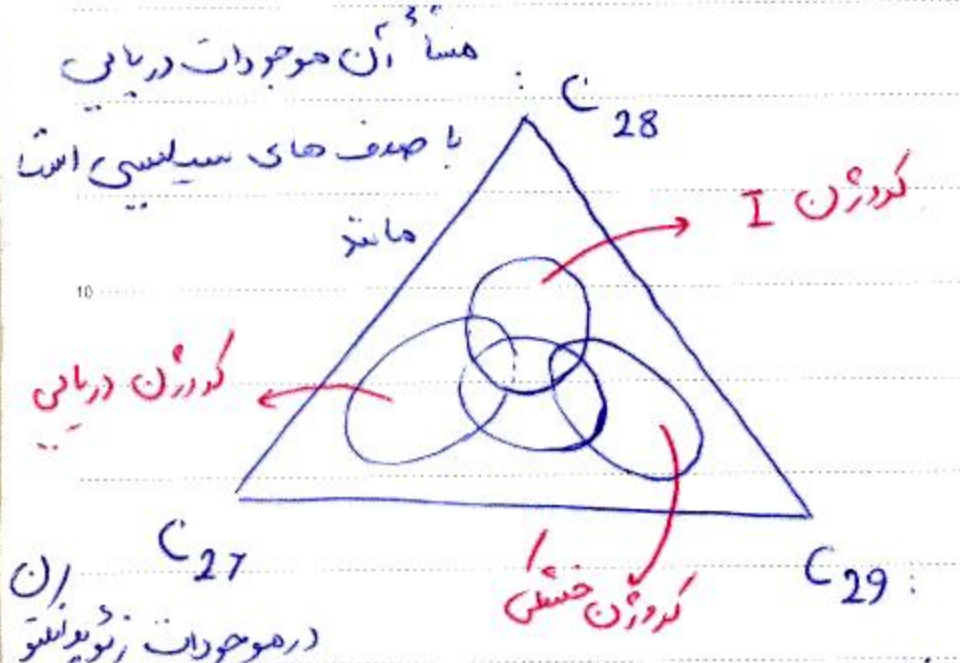 منشأ آن موجودات دریایی
C28 :
با صدف های سیلیسی است
کروژن I
مانند
10
کروژن دریایی
C27
کروژن خشکی
C29 :
در موجودات زئوپلانکتو